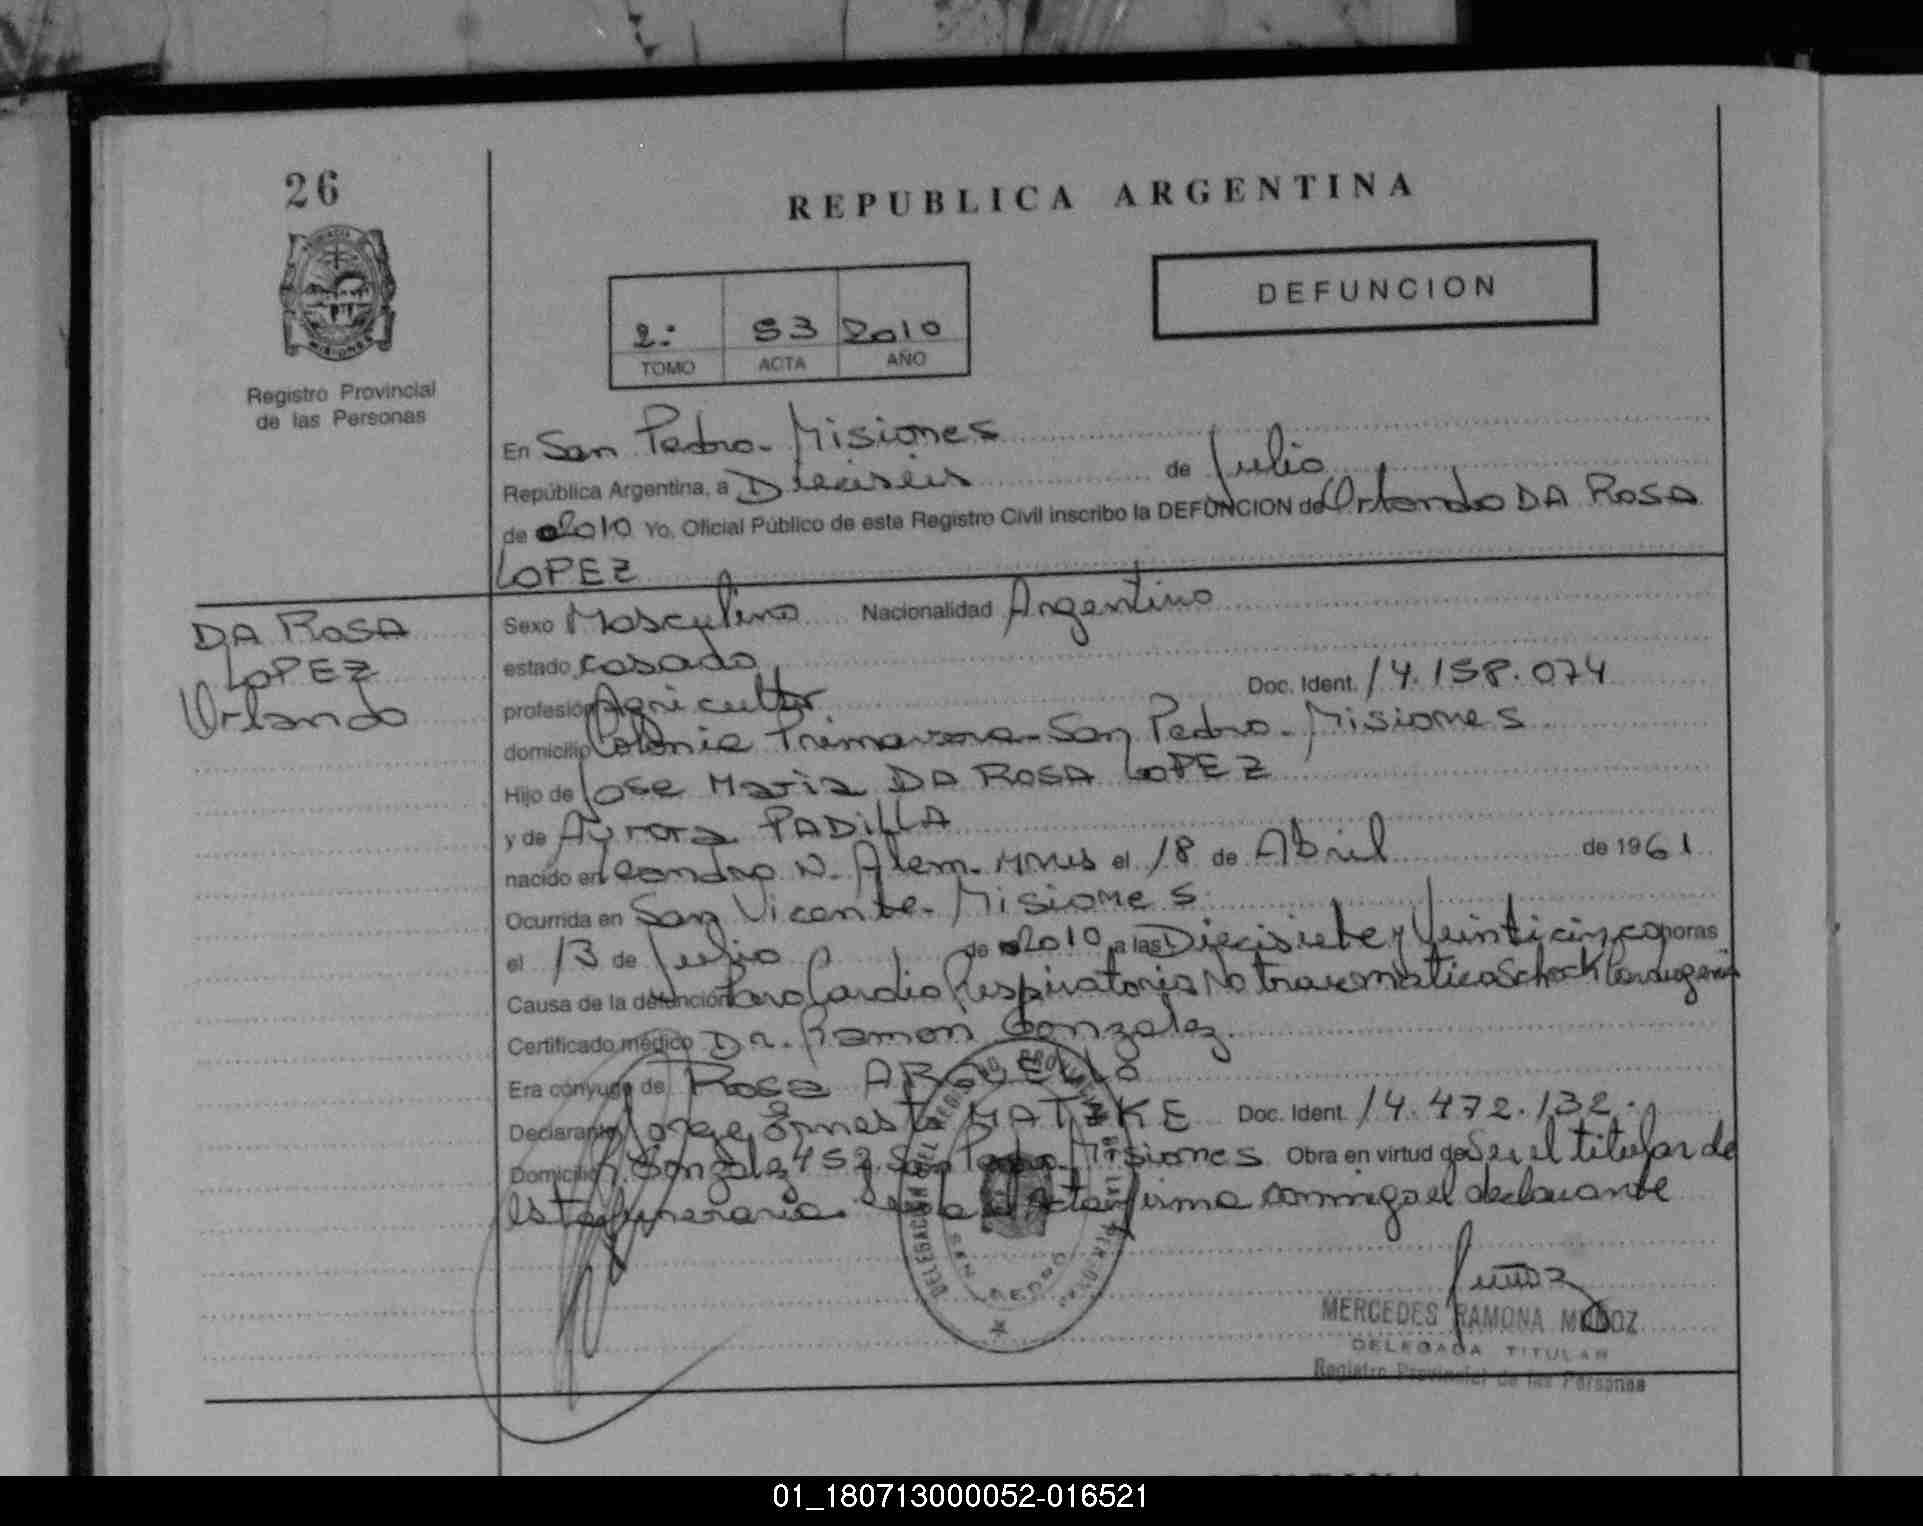 26
REPUBLICA ARGENTINA
DEFUNCION
2: 53 2010
TOMO ACTA AÑO
Registro Provincial
de las Personas
En San Pedro - Misiones
República Argentina, a Dieciséis de Julio
de 2010 Yo, Oficial Público de este Registro Civil inscribo la DEFUNCION de Orlando DA ROSA
LOPEZ
DA ROSA
LOPEZ
Orlando
Sexo Masculino Nacionalidad Argentino
estado casado
profesión Agricultor Doc. Ident. 14.158.074
domicilio Colonia Primavera - San Pedro - Misiones
Hijo de Jose Maria DA ROSA LOPEZ
y de Aurora PADILLA
nacido en Leandro N. Alem - Mnes el 18 de Abril de 1961
Ocurrida en San Vicente - Misiones
el 13 de Julio de 2010 a las Diecisiete y Veinticinco horas
Causa de la defunción Paro Cardio Respiratorio No traumatico Schock
Certificado médico Dr. Ramon Gonzalez
Era cónyuge de Rosa ARGUELLO
Declarante Jorge Ernesto MATZKE Doc. Ident. 14.472.132.
Domicilio Gonzalez 452 San Pedro Misiones Obra en virtud de Ser el titular de
esta funeraria. firma conmigo el declarante
DELEGACION DEL REGISTRO PROVINCIAL DE LAS PERSONAS
SAN PEDRO
Muñoz
MERCEDES RAMONA MUÑOZ
DELEGADA TITULAR
Registro Provincial de las Personas
01_180713000052-016521